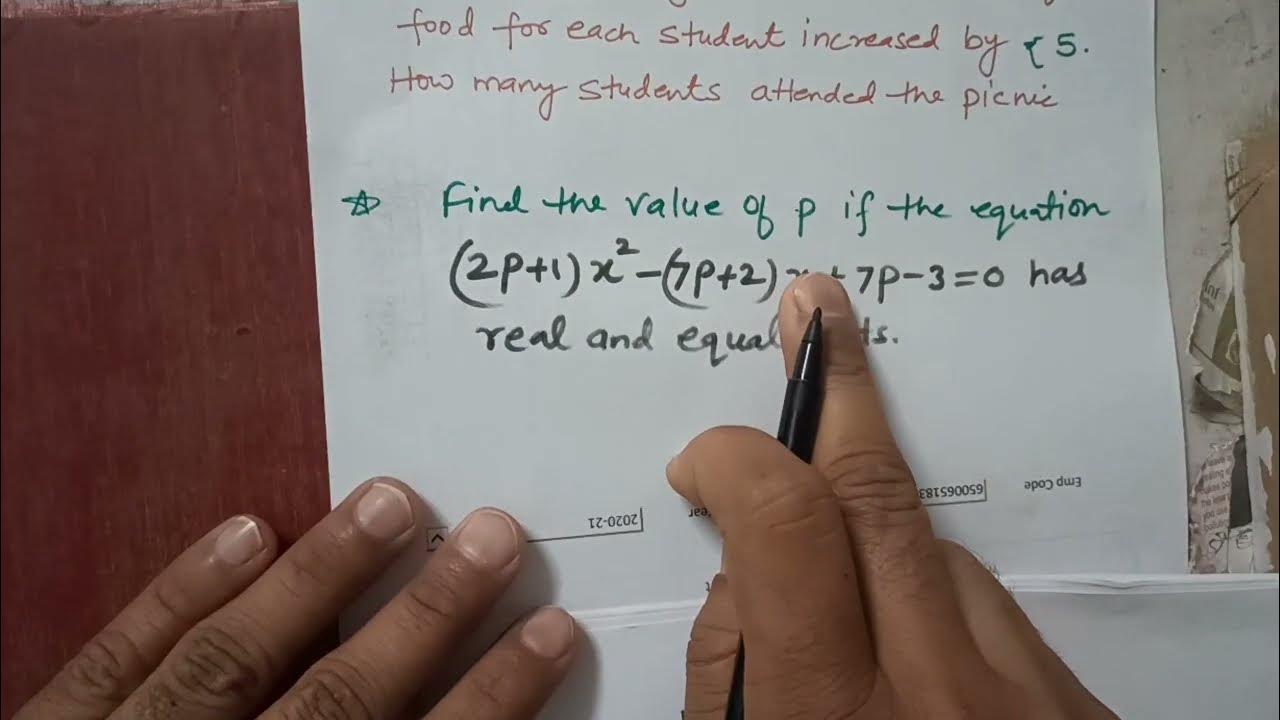 food for each student increased by ₹ 5.
How many students attended the picnic
☆ Find the value of p if the equation
(2p+1)x² - (7p+2)x + 7p-3=0 has
real and equal
Emp Code
65006518
2020-21